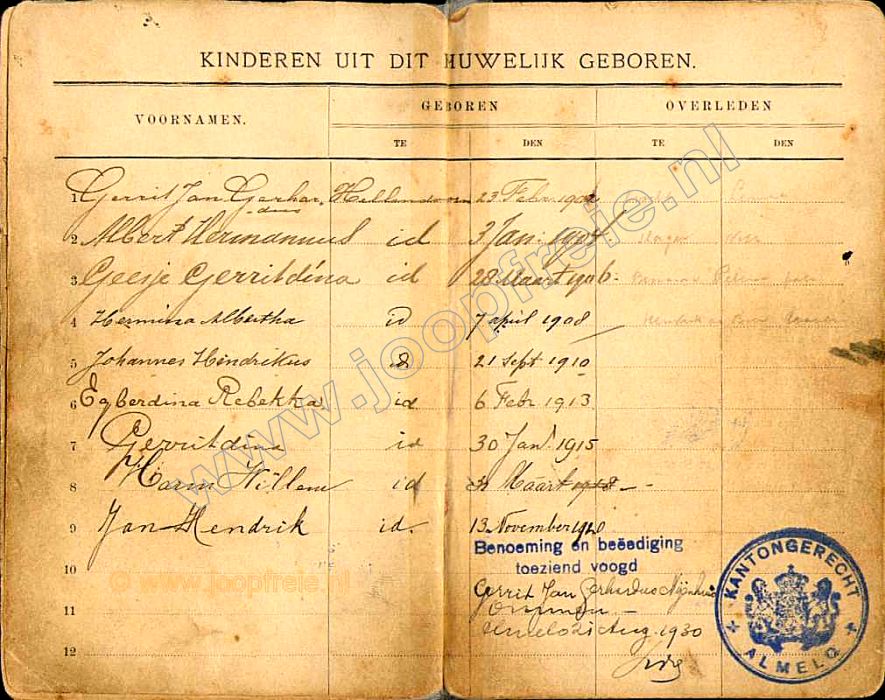 KINDEREN UIT DIT HUWELIJK GEBOREN.
VOORNAMEN. GEBOREN OVERLEDEN
TE DEN TE DEN
1 Gerrit Jan Gerhar- Hellendoorn 23 Febr. 190
dus
2 Albert Hermannus id 3 Jan: 190
3 Geesje Gerritdina id 28 Maart 1906.
4 Hermina Albertha id 7 april 1908
5 Johannes Hendrikus id 21 Sept 1910
6 Egberdina Rebekka id 6 Febr 1913
7 Gerritdina id 30 Jan. 1915
8 Harm Willem id Maart 1918
9 Jan Hendrik id. 13 November 1920
Benoeming en beëediging
10 toeziend voogd
Gerrit Jan Gerhardus Nijenhuis
11
Almelo 21 Aug. 1930
12
KANTONGERECHT
ALMELO
www.joopfreie.nl
© www.joopfreie.nl